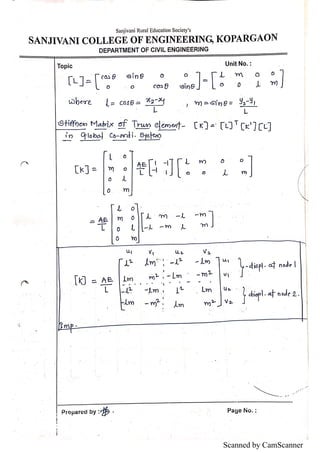 Sanjivani Rural Education Society's
SANJIVANI COLLEGE OF ENGINEERING, KOPARGAON
DEPARTMENT OF CIVIL ENGINEERING
Topic Unit No. :
[L] = [cosθ sinθ 0 0] = [l m 0 0]
[0 0 cosθ sinθ] [0 0 l m]
where l = cosθ = x2-x1 / L , m = sinθ = y2-y1 / L
Stiffness Matrix of Truss element - [K] = [L]T [K'] [L]
in global Co-ordi. System
[K] = [l 0; m 0; 0 l; 0 m] AE/L [1 -1; -1 1] [l m 0 0; 0 0 l m]
= AE/L [l 0; m 0; 0 l; 0 m] [l m -l -m; -l -m l m]
u1 v1 u2 v2
l² lm -l² -lm u1 } - displ. at node 1
[K] = AE/L lm m² -lm -m² v1
-l² -lm l² lm u2 } displ. at node 2.
-lm -m² lm m² v2
Imp.
Prepared by : Page No. :
Scanned by CamScanner